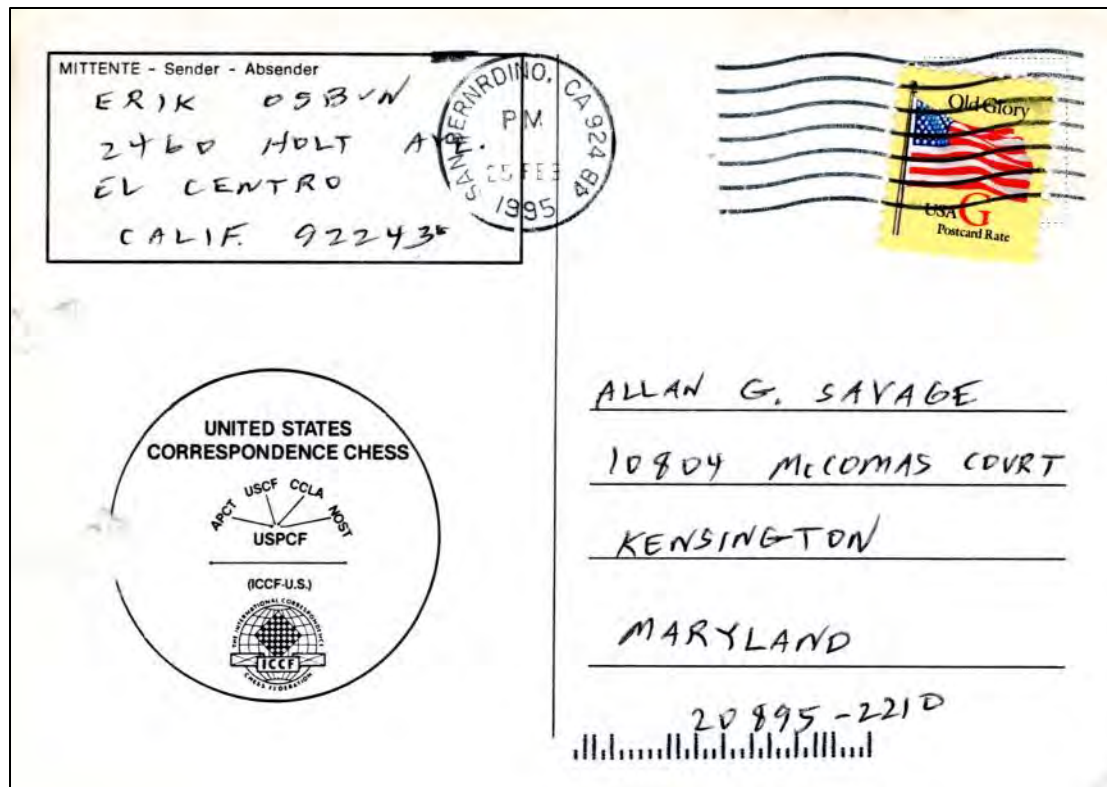 MITTENTE - Sender - Absender
ERIK OSBUN
2460 HOLT AVE.
EL CENTRO
CALIF. 92243
SAN BERNRDINO, CA 924
PM
25 FEB
1995
Old Glory
USA G
Postcard Rate
UNITED STATES
CORRESPONDENCE CHESS
APCT USCF CCLA NOST
USPCF
(ICCF-U.S.)
THE INTERNATIONAL CORRESPONDENCE
ICCF
CHESS FEDERATION
ALLAN G. SAVAGE
10804 McCOMAS COURT
KENSINGTON
MARYLAND
20895-2210